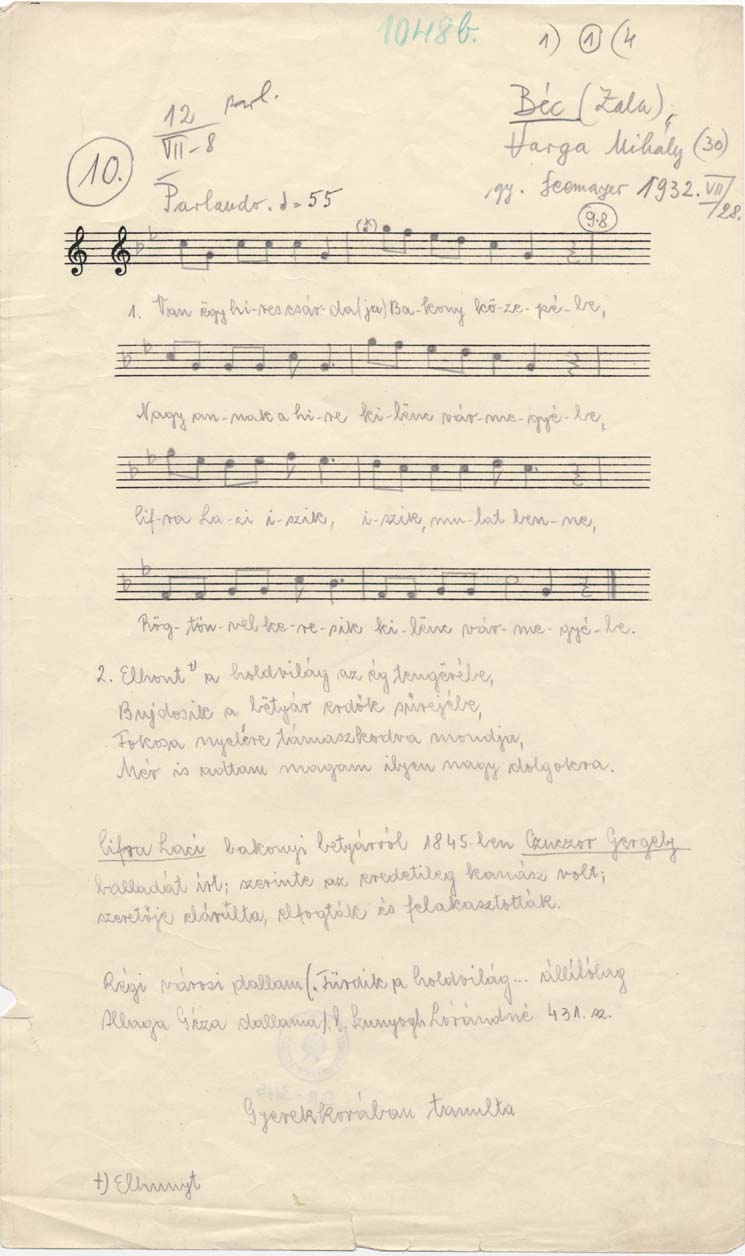 1048b.
1) ① (4
12 parl.
VII-8
Béc (Zala),
Varga Mihály (30)
gy. Seemayer 1932. VII/28.
10.
Parlando. ♩=55
9.8
1. Van ëgy hi-res csár-da(ja) Ba-kony kö-ze-pé-be,
Nagy an-nak a hi-re ki-lënc vár-me-gyé-be,
Cif-ra La-ci i-szik, i-szik, mu-lat ben-ne,
Rög-tön-vel ke-re-sik ki-lënc vár-me-gyé-be.
2. Elhont +) a holdvilág az ég tengërébe,
Bujdosik a bëtyár erdők sűrejébe,
Fokosa nyelére támaszkodva mondja,
Mér is adtam magam ilyen nagy dolgokra.
Cifra Laci bakonyi betyárról 1845-ben Czuczor Gergely
balladát írt; szerinte az eredetileg kanász volt;
szeretője elárulta, elfogták és felakasztották.
Régi városi dallam (Fürdik a holdvilág... állítólag
Allaga Géza dallama). l. Szunyogh Lórándné 431. sz.
Gyerekkorában tanulta
+) Elhunyt